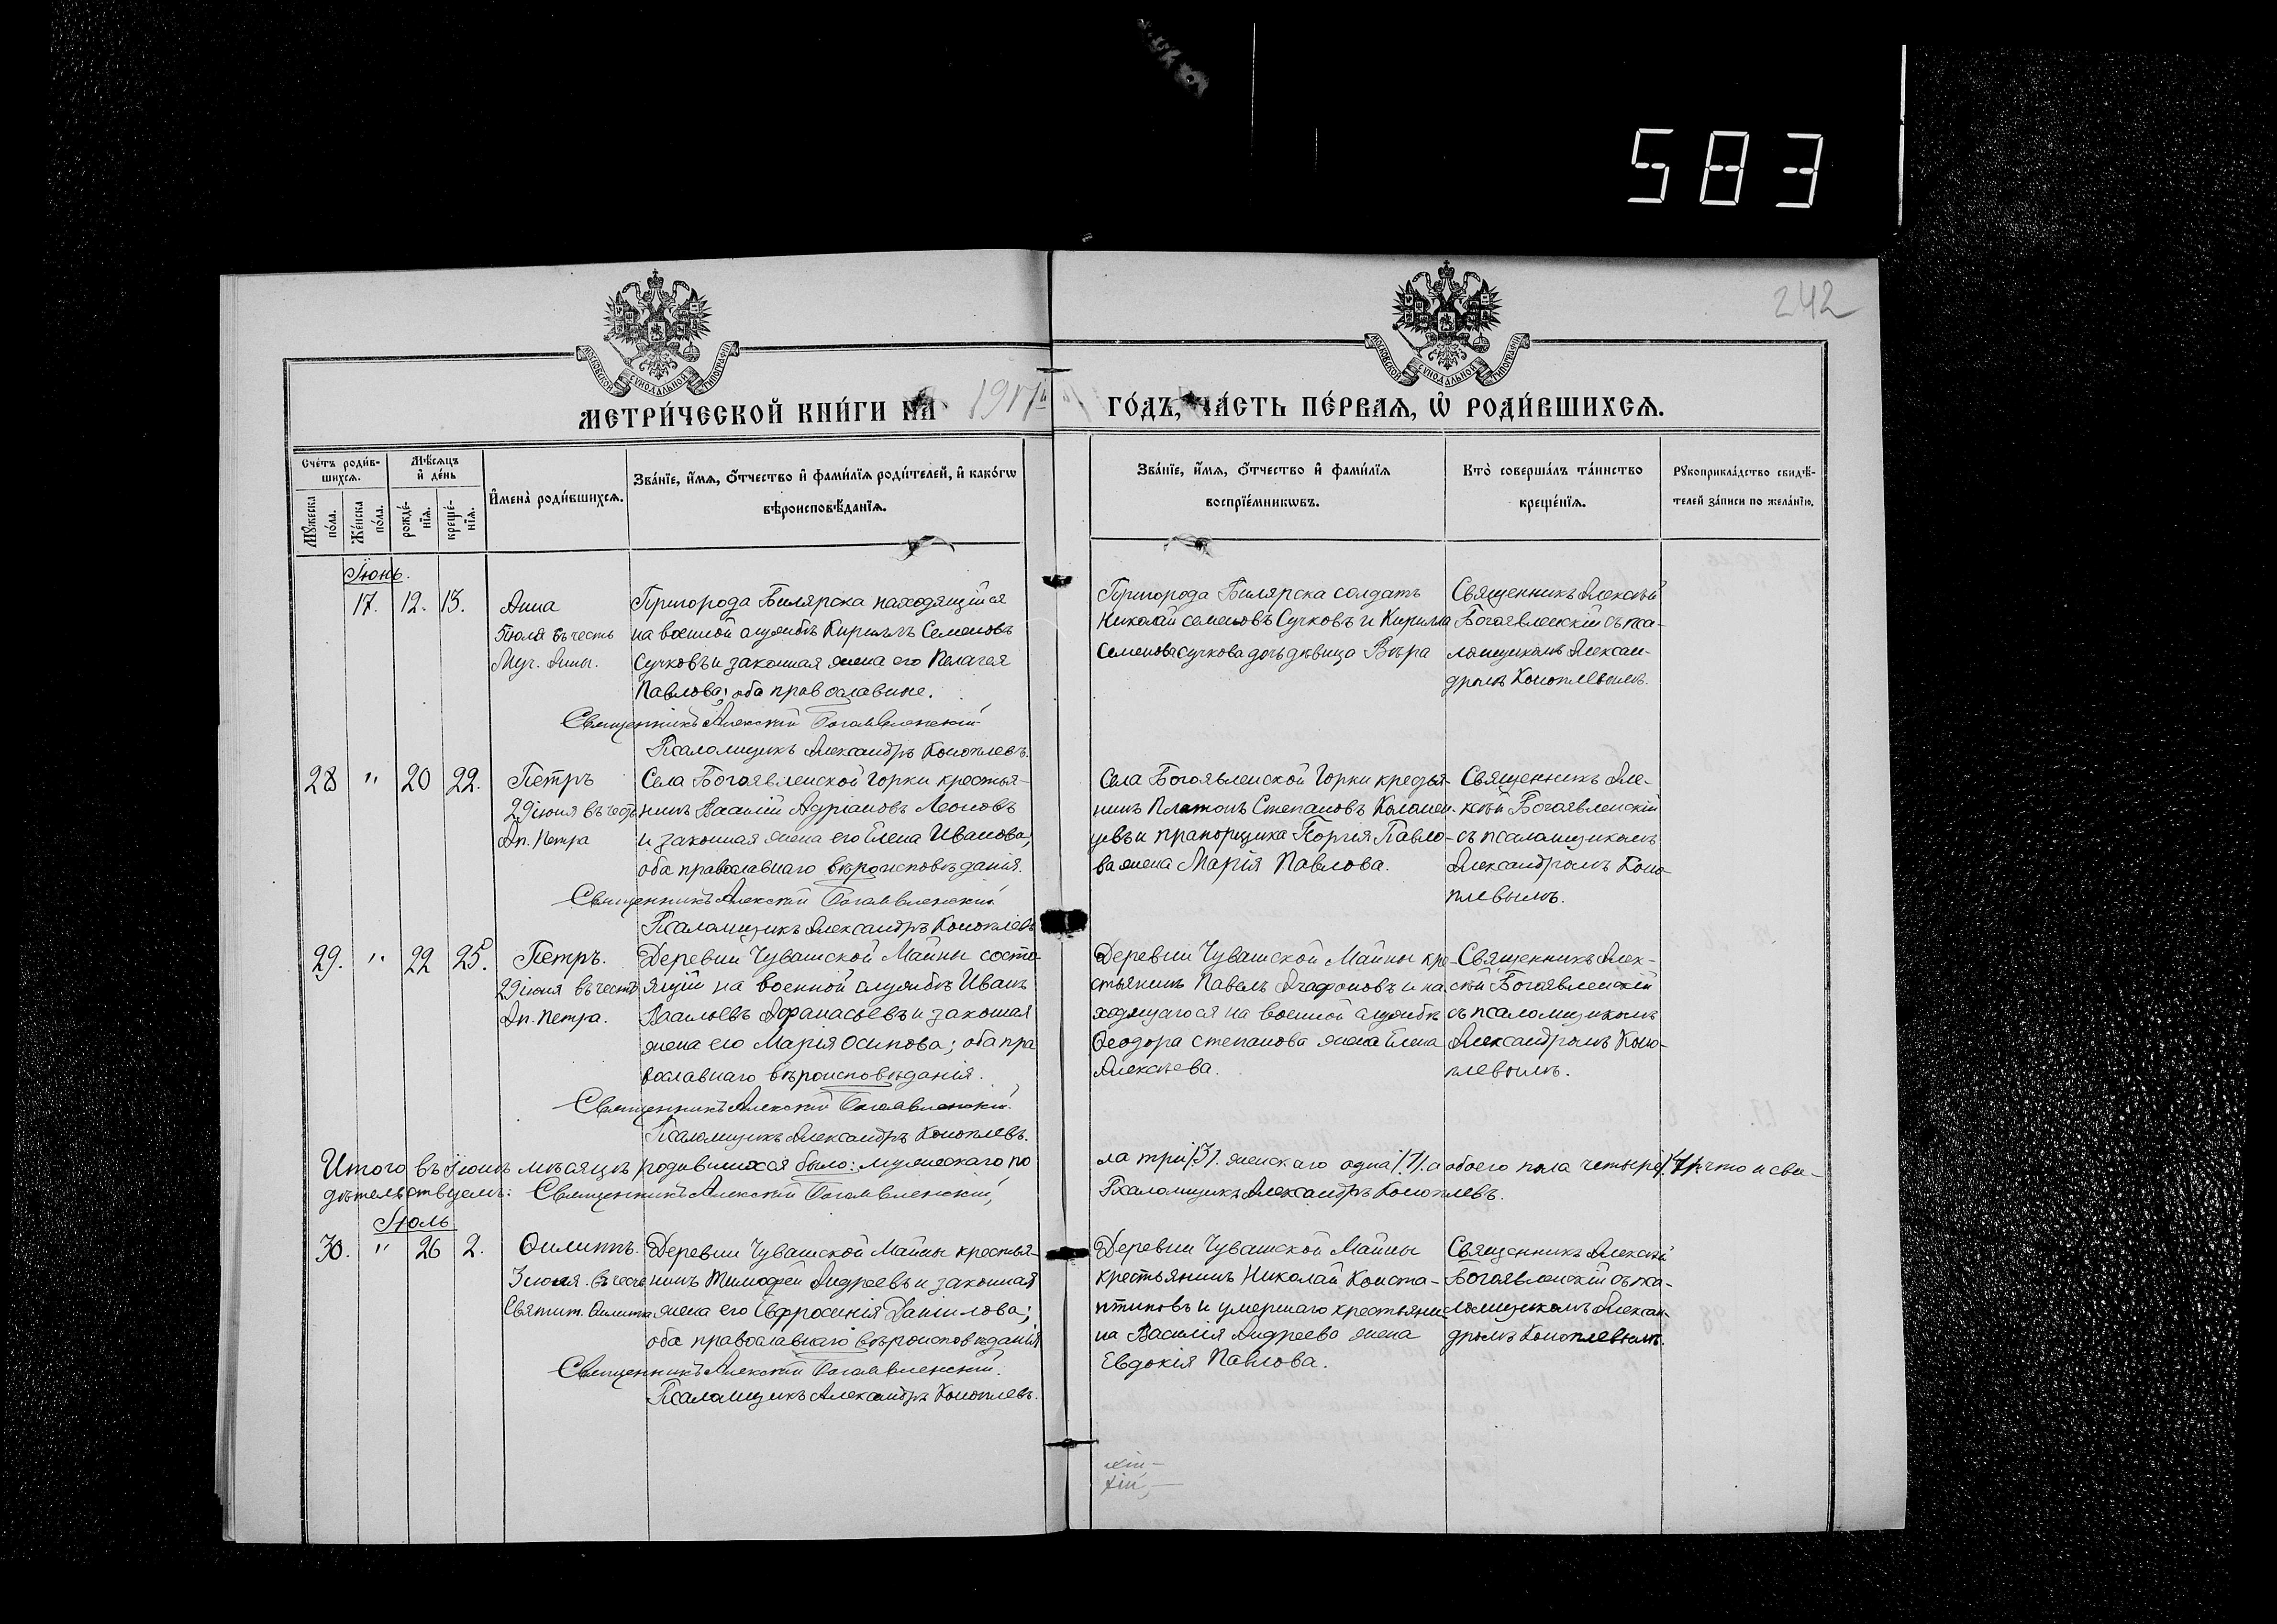 583
242
МОСКОВСКОЙ СѴНОДАЛЬНОЙ ТИПОГРАФІИ
МОСКОВСКОЙ СѴНОДАЛЬНОЙ ТИПОГРАФІИ
МЕТРИ́ЧЕСКОЙ КНИ́ГИ НА 1917й ГО́ДЪ, ЧА́СТЬ ПЕ́РВАѦ, Ѡ҆ РОДИ́ВШИХСѦ.
Сче́тъ роди́в-
шихсѧ.
Мꙋ́жеска по́ла.
Же́нска по́ла.
Мѣ́сѧцъ
и҆ де́нь
рожде́-нїѧ.
креще́-нїѧ.
И҆мена̀ роди́вшихсѧ.
Зва́нїе, и҆́мѧ, о҆́тчество и҆ фами́лїѧ роди́телей, и҆ како́гѡ
вѣроисповѣ́данїѧ.
Зва́нїе, и҆́мѧ, о҆́тчество и҆ фами́лїѧ
воспрїе́мникѡвъ.
Кто̀ соверша́лъ та́инство
креще́нїѧ.
Рꙋкоприкла́дство свидѣ́-
телей за́писи по жела́нїю.
Іюнь.
17. 12. 13.
Анна
5 Іюля въ честь
Муч. Анны.
Пригорода Билярска находящійся
на военной службѣ Кириллъ Семеновъ
Сучковъ и законная жена его Пелагея
Павлова; оба православные.
Священникъ Алексій Богоявленскій
Псаломщикъ Александръ Коноплевъ.
Пригорода Билярска солдатъ
Николай Семеновъ Сучковъ и Кирилла
Семенова Сучкова дочь дѣвица Вѣра
Священникъ Алексѣй
Богоявленскій съ пса-
ломщикомъ Алексан-
дромъ Коноплевымъ.
28 " 20 22.
Петръ
29 іюня въ честь
Ап. Петра
Села Богоявленской Горки крестья-
нинъ Василій Адріановъ Леоновъ
и законная жена его Елена Иванова;
оба православнаго вѣроисповѣданія.
Священникъ Алексій Богоявленскій
Псаломщикъ Александръ Коноплевъ
Села Богоявленской Горки крестья-
нинъ Платонъ Степановъ
и прапорщика Георгія Павло-
ва жена Марія Павлова.
Священникъ Але-
ксѣй Богоявленскій
съ псаломщикомъ
Александромъ Коно-
плевымъ.
29. " 22 25.
Петръ.
29 іюня въ честь
Ап. Петра.
Деревни Чувашской Майны состо-
ящій на военной службѣ Иванъ
Васильевъ Афанасьевъ и законная
жена его Марія Осипова; оба пра
вославнаго вѣроисповѣданія.
Священникъ Алексій Богоявленскій.
Псаломщикъ Александръ Коноплевъ.
Деревни Чувашской Майны кре-
стьянинъ Павелъ Агафоновъ и на-
ходящагося на военной службѣ
Ѳеодора Степанова жена Елена
Алексѣева.
Священникъ Алек-
сѣй Богоявленскій
съ псаломщикомъ
Александромъ Коно-
плевымъ.
Итого въ Іюнѣ мѣсяцѣ родившихся было: мужескаго по
ла три /3/. женскаго одна /1/. а обоего пола четыре /4/. что и сви-
дѣтельствуемъ: Священникъ Алексій Богоявленскій,
Псаломщикъ Александръ Коноплевъ.
Іюль
30. " 26 2.
Филиппъ.
3 іюля въ честь
Святит. Филиппа
Деревни Чувашской Майны крестья-
нинъ Тимофей Андреевъ и законная
жена его Евфросинія Данилова;
оба православнаго вѣроисповѣданія
Священникъ Алексій Богоявленскій.
Псаломщикъ Александръ Коноплевъ.
Деревни Чувашской Майны
крестьянинъ Николай Конста-
нтиновъ и умершаго крестьяни-
на Василія Андреева жена
Евдокія Павлова.
Священникъ Алексѣй
Богоявленскій съ пса-
ломщикомъ Алексан-
дромъ Коноплевымъ.